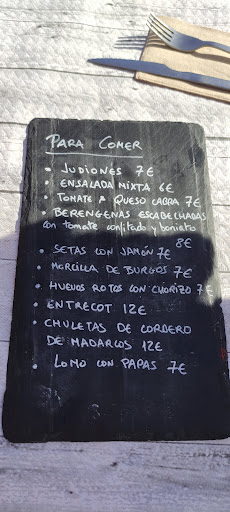 PARA COMER
• JUDIONES 7€
• ENSALADA MIXTA 6€
• TOMATE & QUESO CABRA 7€
• BERENGENAS ESCABECHADAS
con tomate confitado y boniato
8€
• SETAS CON JAMÓN 7€
• MORCILLA DE BURGOS 7€
• HUEVOS ROTOS CON CHORIZO 7€
• ENTRECOT 12€
• CHULETAS DE CORDERO
DE MADARCOS 12€
• LOMO CON PAPAS 7€